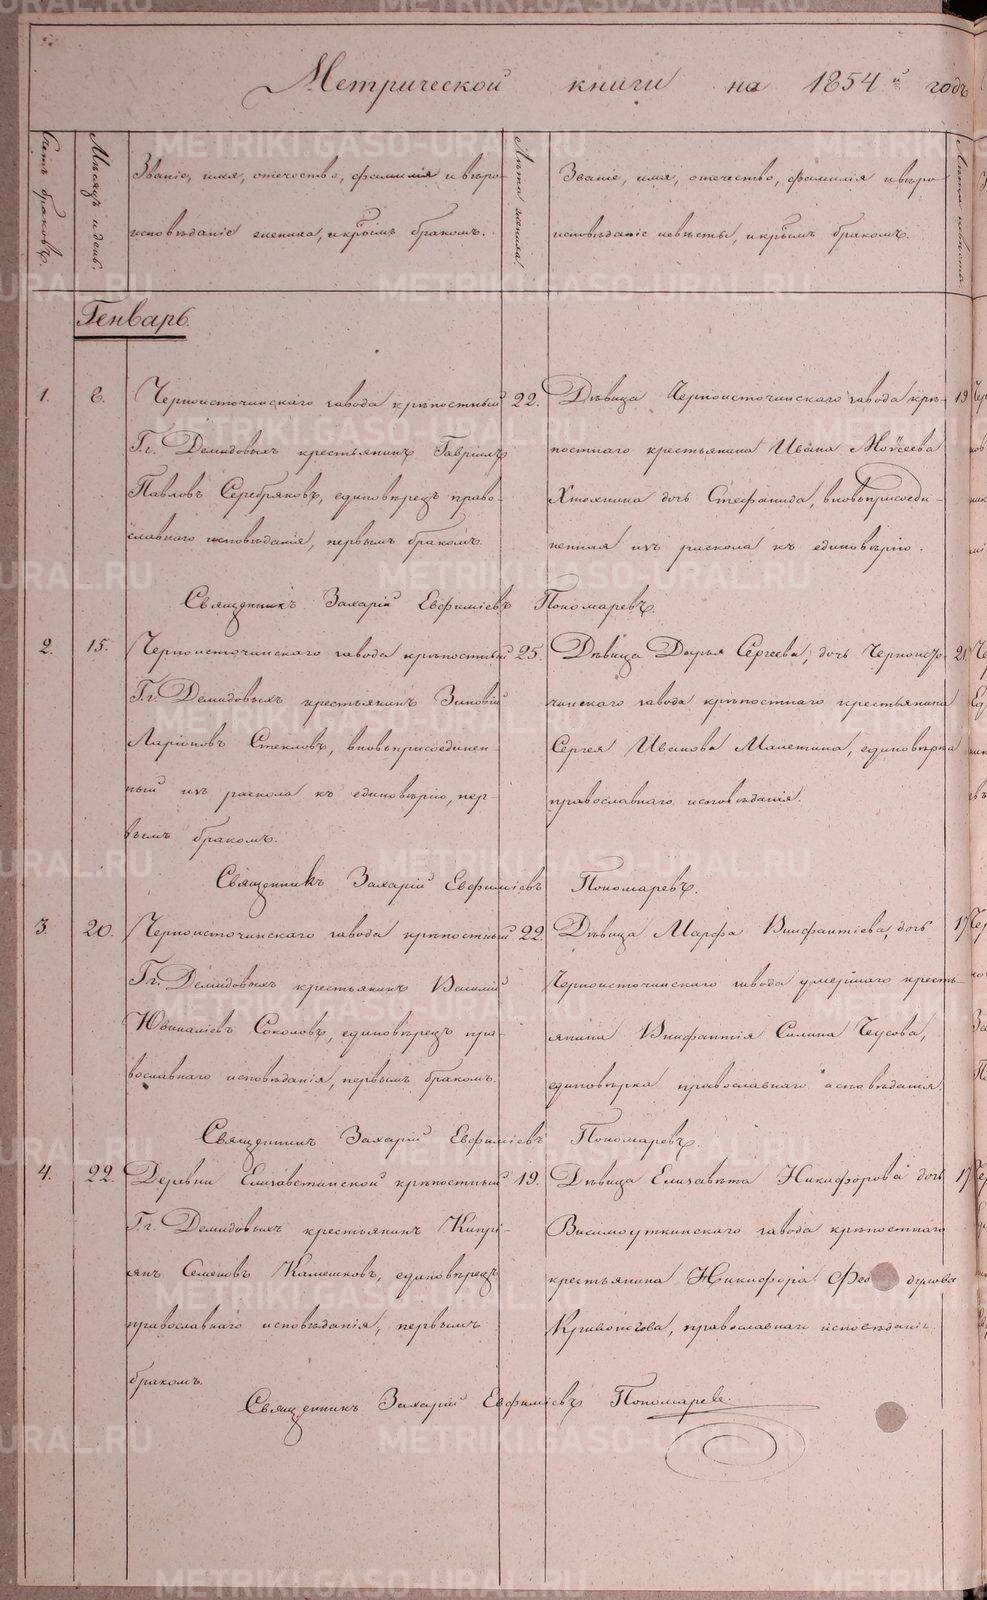 Метрической книги на 1854й годъ
Счетъ браковъ.
Мѣсяцъ и день.
Званіе, имя, отечество, фамилія и вѣро-
исповѣданіе жениха, и кѣимъ бракомъ.
Лѣта жениха.
Званіе, имя, отечество, фамилія и вѣро
исповѣданіе невѣсты, и кѣимъ бракомъ.
Лѣта невѣсты.
Генварь.
1.
6.
Черноисточинскаго завода крѣпостный
Г.г. Демидовыхъ крестьянинъ Гавріилъ
Павловъ Серебряковъ, единовѣрецъ право-
славнаго исповѣданія, первымъ бракомъ.
22.
Дѣвица Черноисточинскаго завода крѣ-
постнаго крестьянина Ивана Моѵсеева
дочь Стефанида, вновьприсоеди-
ненная изъ раскола къ единовѣрію.
19
Священникъ Захарій Евфиміевъ Пономаревъ.
2.
15.
Черноисточинскаго завода крѣпостный
Г.г. Демидовыхъ крестьянинъ Зиновій
Ларіоновъ Стекловъ, вновьприсоединен-
ный изъ раскола къ единовѣрію, пер-
вымъ бракомъ.
25.
Дѣвица Дарья Сергеева, дочь Черноисто-
чинскаго завода крѣпостнаго крестьянина
Сергея Иванова Малетина, единовѣрка
православнаго исповѣданія.
21
Священникъ Захарій Евфиміевъ Пономаревъ.
3.
20.
Черноисточинскаго завода крѣпостный
Г.г. Демидовыхъ крестьянинъ Василій
Ювиналіевъ Соколовъ, единовѣрецъ пра-
вославнаго исповѣданія, первымъ бракомъ.
22.
Дѣвица Марфа Внифантіева, дочь
Черноисточинскаго завода умершаго кресть-
янина Внифантія Силина Чеусова,
единовѣрка православнаго исповѣданія.
17
Священникъ Захарій Евфиміевъ Пономаревъ.
4.
22.
Деревни Елизаветинской крѣпостный
Г.г. Демидовыхъ крестьянинъ Кипрі-
янъ Семеновъ Камешковъ, единовѣрецъ
православнаго исповѣданія, первымъ
бракомъ.
19.
Дѣвица Елизавета Никифорова дочь
Висимоуткинскаго завода крѣпостнаго
крестьянина Никифора Феодорова
Кривоногова, православнаго исповѣданія.
17
Священникъ Захарій Евфиміевъ Пономаревъ.
METRIKI.GASO-URAL.RU